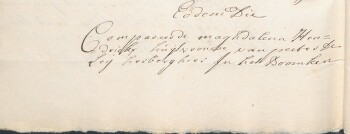 Eodem Die
Compareerde maghdalena Hen-
drickx huijsvrouwe van peeter De
Leij herberghier In het Boomken